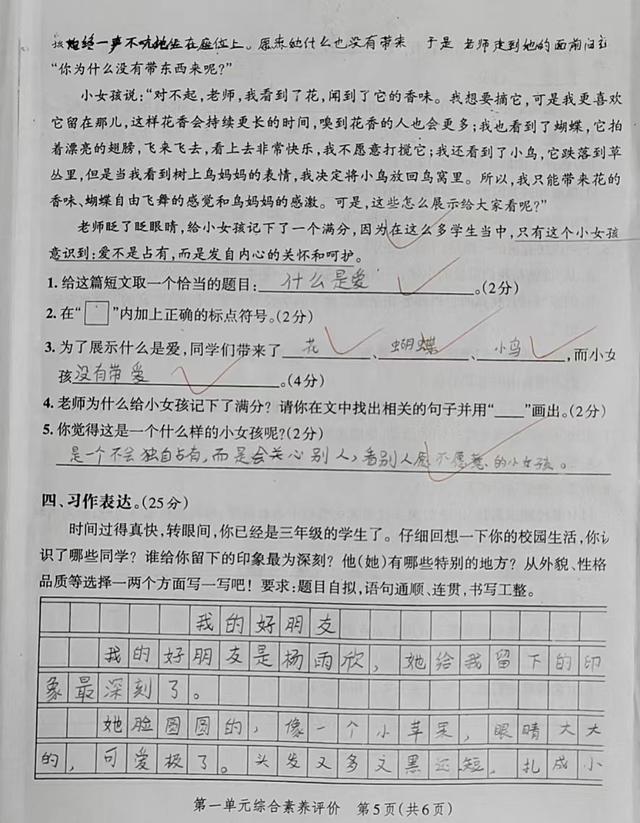 一声不吭地坐在座位上。原来她什么也没有带来 于是 老师走到她的面前问到
“你为什么没有带东西来呢?”
小女孩说:“对不起,老师,我看到了花,闻到了它的香味。我想要摘它,可是我更喜欢
它留在那儿,这样花香会持续更长的时间,嗅到花香的人也会更多;我也看到了蝴蝶,它拍
着漂亮的翅膀,飞来飞去,看上去非常快乐,我不愿意打搅它;我还看到了小鸟,它跌落到草
丛里,但是当我看到树上鸟妈妈的表情,我决定将小鸟放回鸟窝里。所以,我只能带来花的
香味、蝴蝶自由飞舞的感觉和鸟妈妈的感激。可是,这些怎么展示给大家看呢?”
老师眨了眨眼睛,给小女孩记下了一个满分,因为在这么多学生当中,只有这个小女孩
意识到:爱不是占有,而是发自内心的关怀和呵护。
1. 给这篇短文取一个恰当的题目: 什么是爱 。(2分)
2. 在“□”内加上正确的标点符号。(2分)
3. 为了展示什么是爱,同学们带来了 花 、 蝴蝶 、 小鸟 ,而小女
孩 没有带爱 。(4分)
4. 老师为什么给小女孩记下了满分? 请你在文中找出相关的句子并用“____”画出。(2分)
5. 你觉得这是一个什么样的小女孩呢?(2分)
是一个不会独自占有,而是会关心别人,看别人愿不愿意的小女孩。
四、习作表达。(25分)
时间过得真快,转眼间,你已经是三年级的学生了。仔细回想一下你的校园生活,你认
识了哪些同学? 谁给你留下的印象最为深刻? 他(她)有哪些特别的地方? 从外貌、性格
品质等选择一两个方面写一写吧! 要求:题目自拟,语句通顺、连贯,书写工整。
我的好朋友
我的好朋友是杨雨欣,她给我留下的印
象最深刻了。
她脸圆圆的,像一个小苹果,眼睛大大
的,可爱极了。头发又多又黑还短,扎成小
第一单元综合素养评价 第5页(共6页)